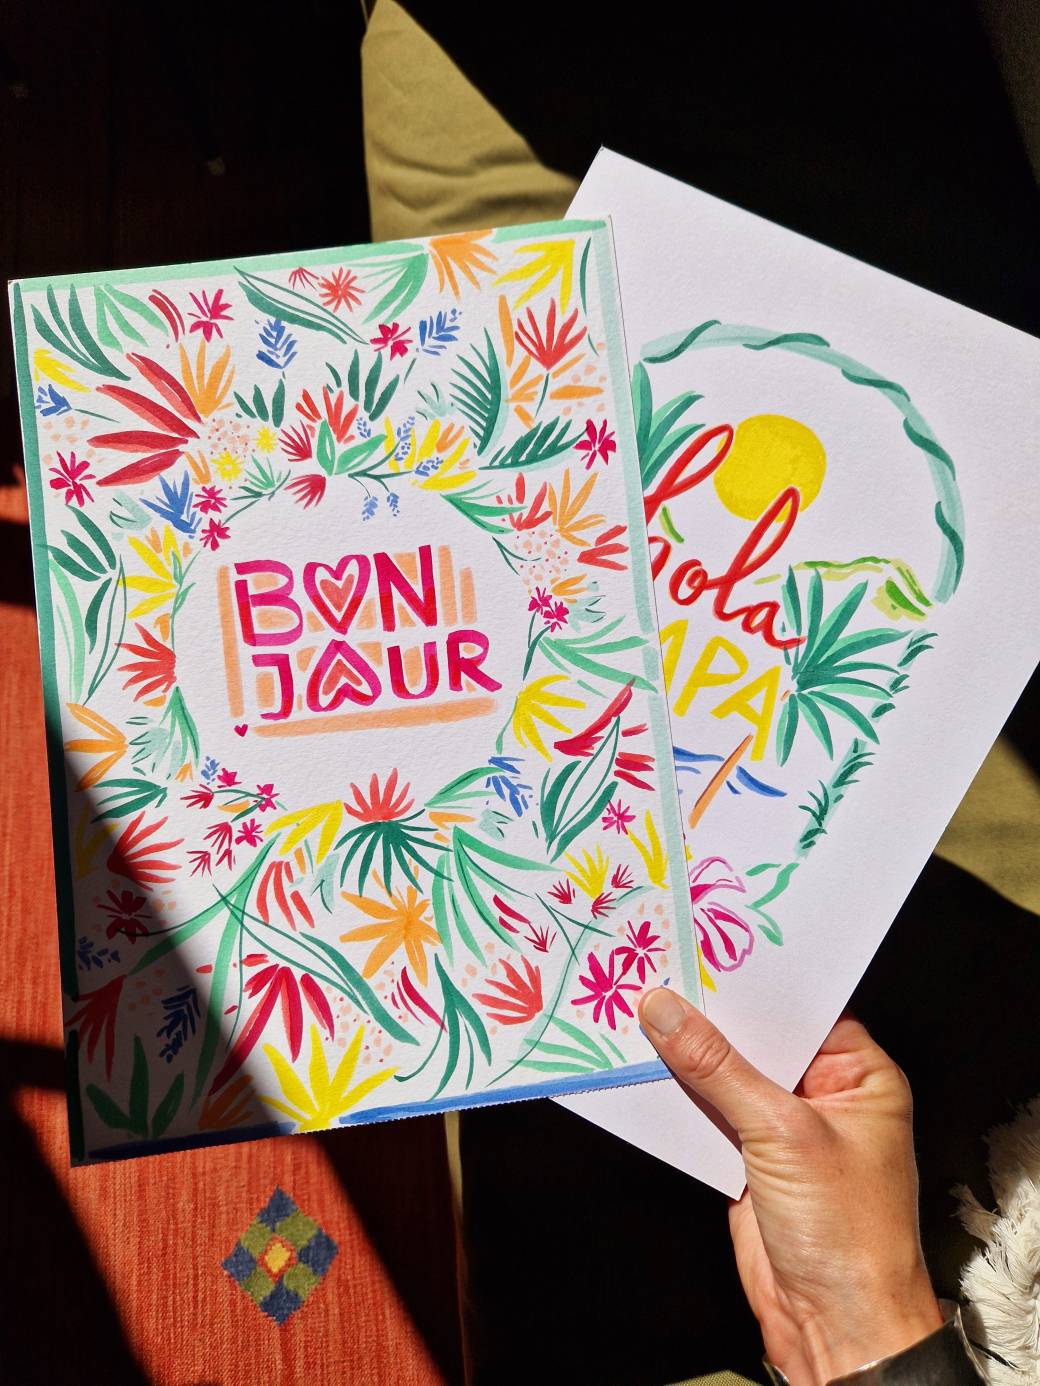 BON
JOUR
hola
APA